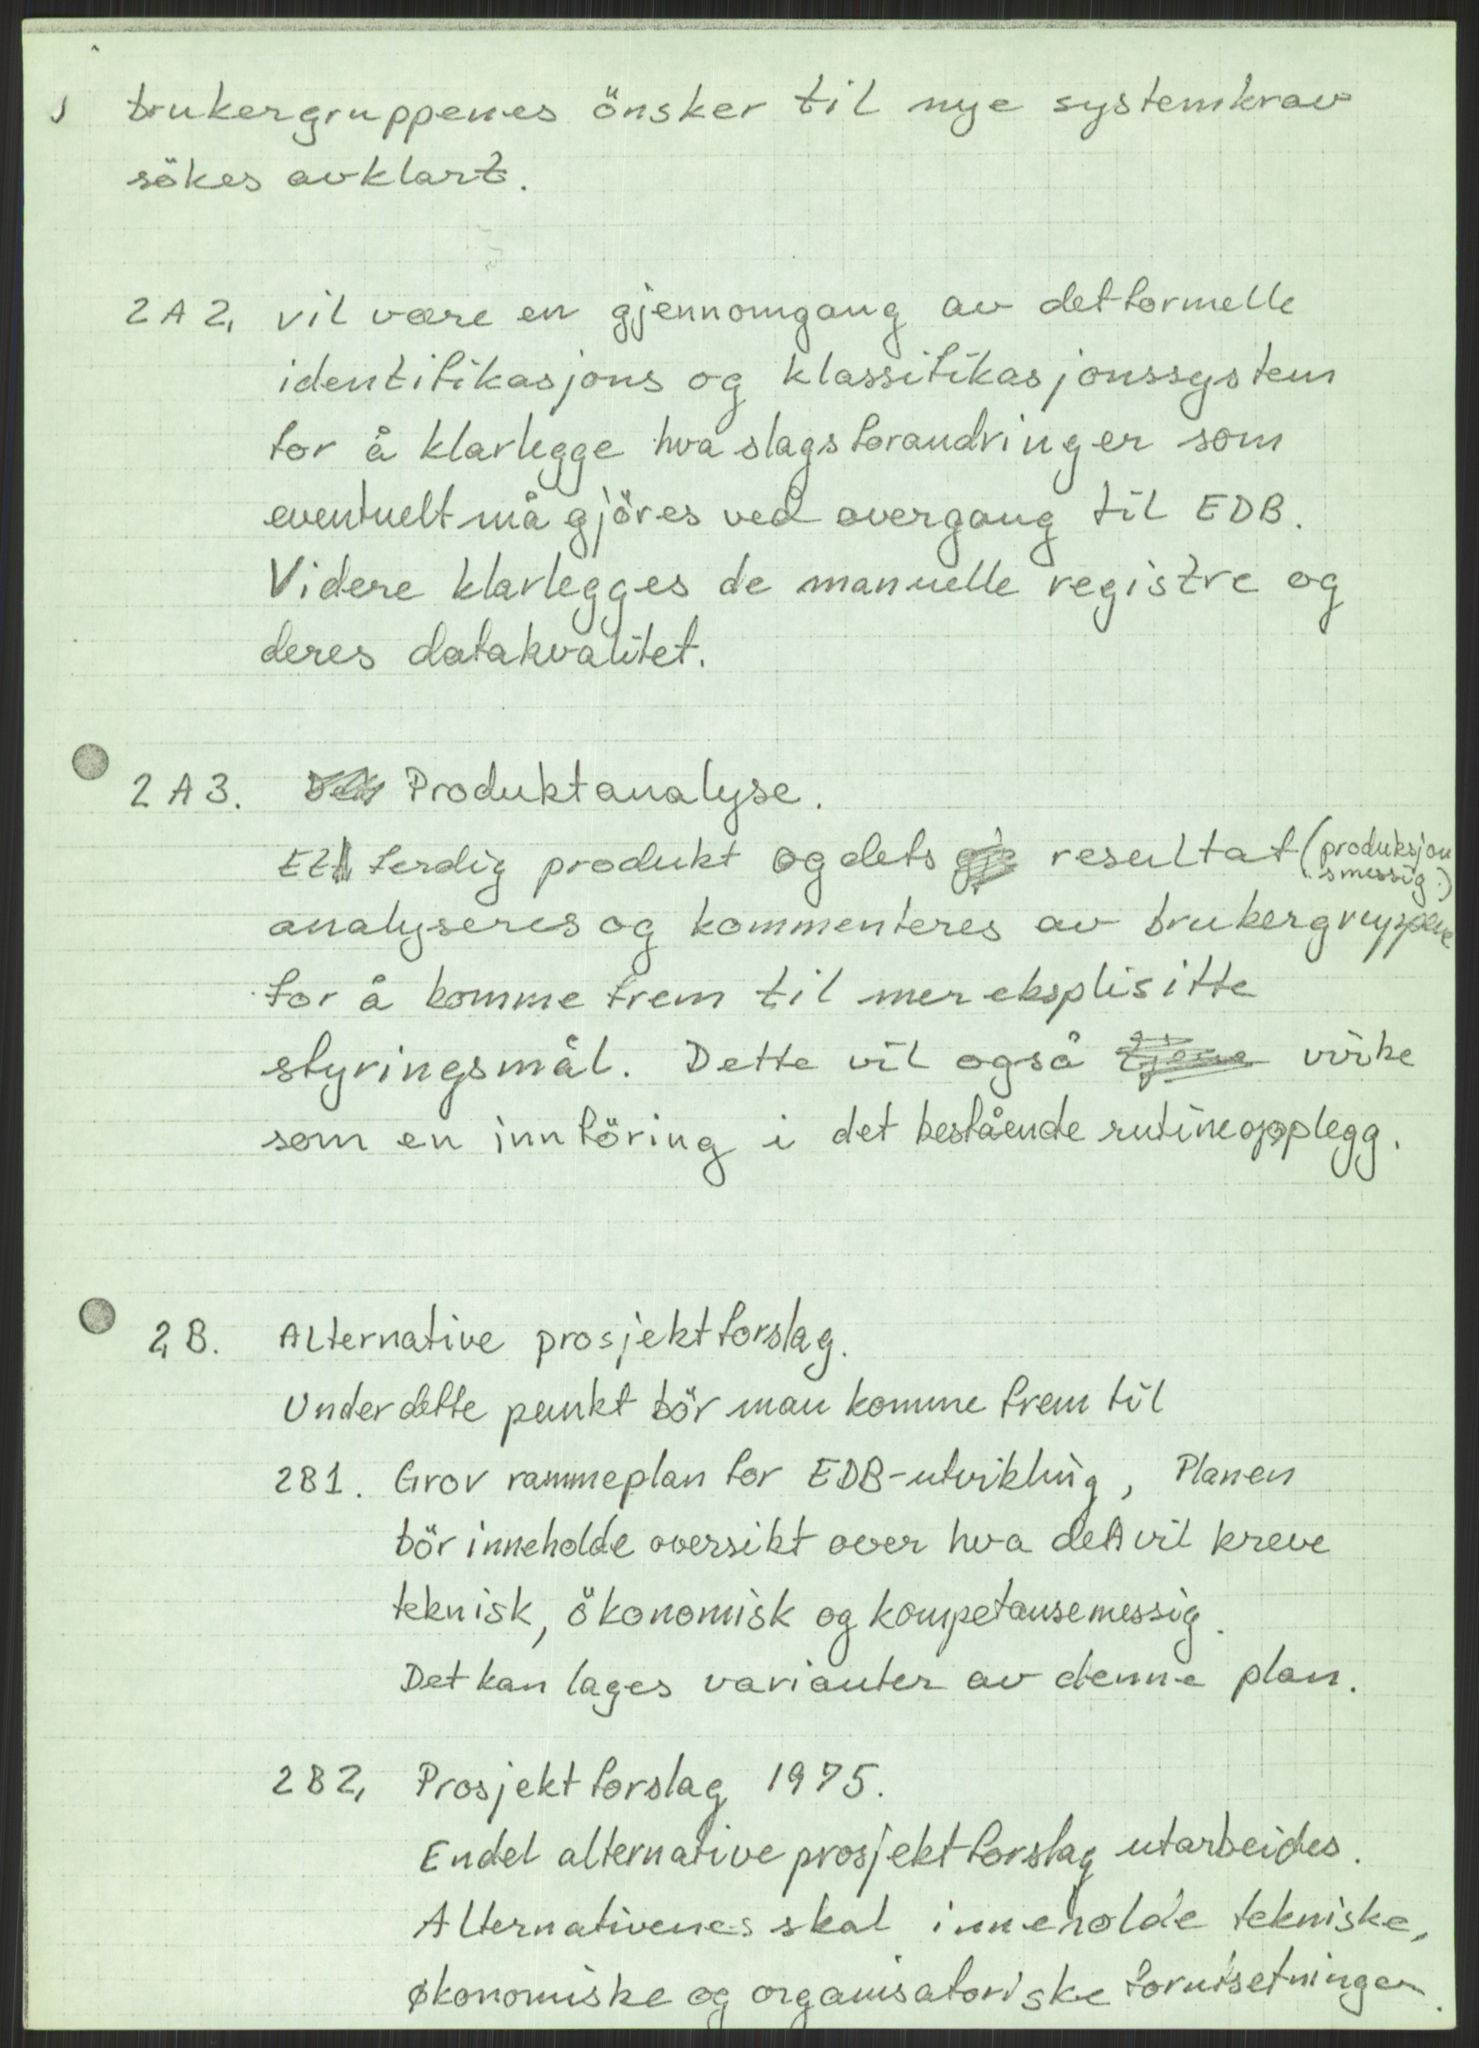 brukergruppenes önsker til nye systemkrav
sökes avklart.
2A2. vil være en gjennomgang av det formelle
identifikasjons og klassifikasjonssystem
for å klarlegge hva slags forandringer som
eventuelt må gjöres ved overgang til EDB.
Videre klarlegges de manuelle registre og
deres datakvalitet.
2A3. Produktanalyse.
Ett ferdig produkt og dets resultat (produksjon
smessig.)
analyseres og kommenteres av brukergruppene
for å komme frem til mer eksplisitte
styringsmål. Dette vil også virke
som en innföring i det bestående rutineopplegg.
2B. Alternative prosjektforslag.
Under dette punkt bör man komme frem til
2B1. Grov rammeplan for EDB-utvikling, Planen
bör inneholde oversikt over hva det vil kreve
teknisk, ökonomisk og kompetansemessig.
Det kan lages varianter av denne plan.
2B2. Prosjektforslag 1975.
Endel alternative prosjektforslag utarbeides.
Alternativenes skal inneholde tekniske,
økonomiske og organisatoriske forutsetninger.